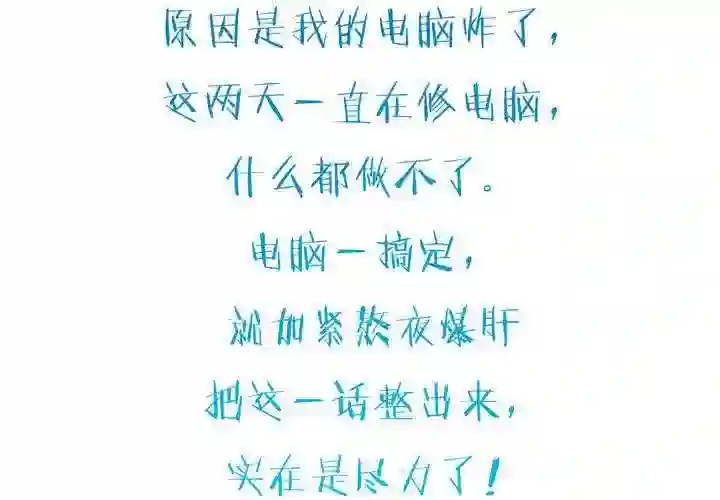 原因是我的电脑炸了，
这两天一直在修电脑，
什么都做不了。
电脑一搞定，
就加紧熬夜爆肝
把这一话整出来，
实在是尽力了！